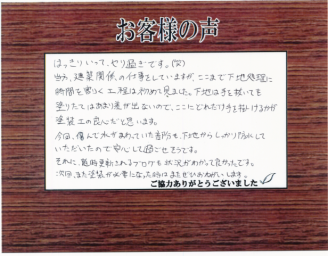 お客様の声
はっきりいって、やり過ぎです。(笑)
当方、建築関係の仕事をしていますが、ここまで下地処理に
時間を割く工程は初めて見ました。下地は手を抜いても
塗りたてはあまり差が出ないので、ここにどれだけ手を掛けるかが
塗装工の良心だと思います。
今回、傷んで水がまわっていた箇所を、下地からしっかり防水して
いただいたので安心して過ごせそうです。
それに、随時更新されるブログも状況がわかって良かったです。
次回、また塗装が必要になった時はまたぜひおねがいします。
ご協力ありがとうございました